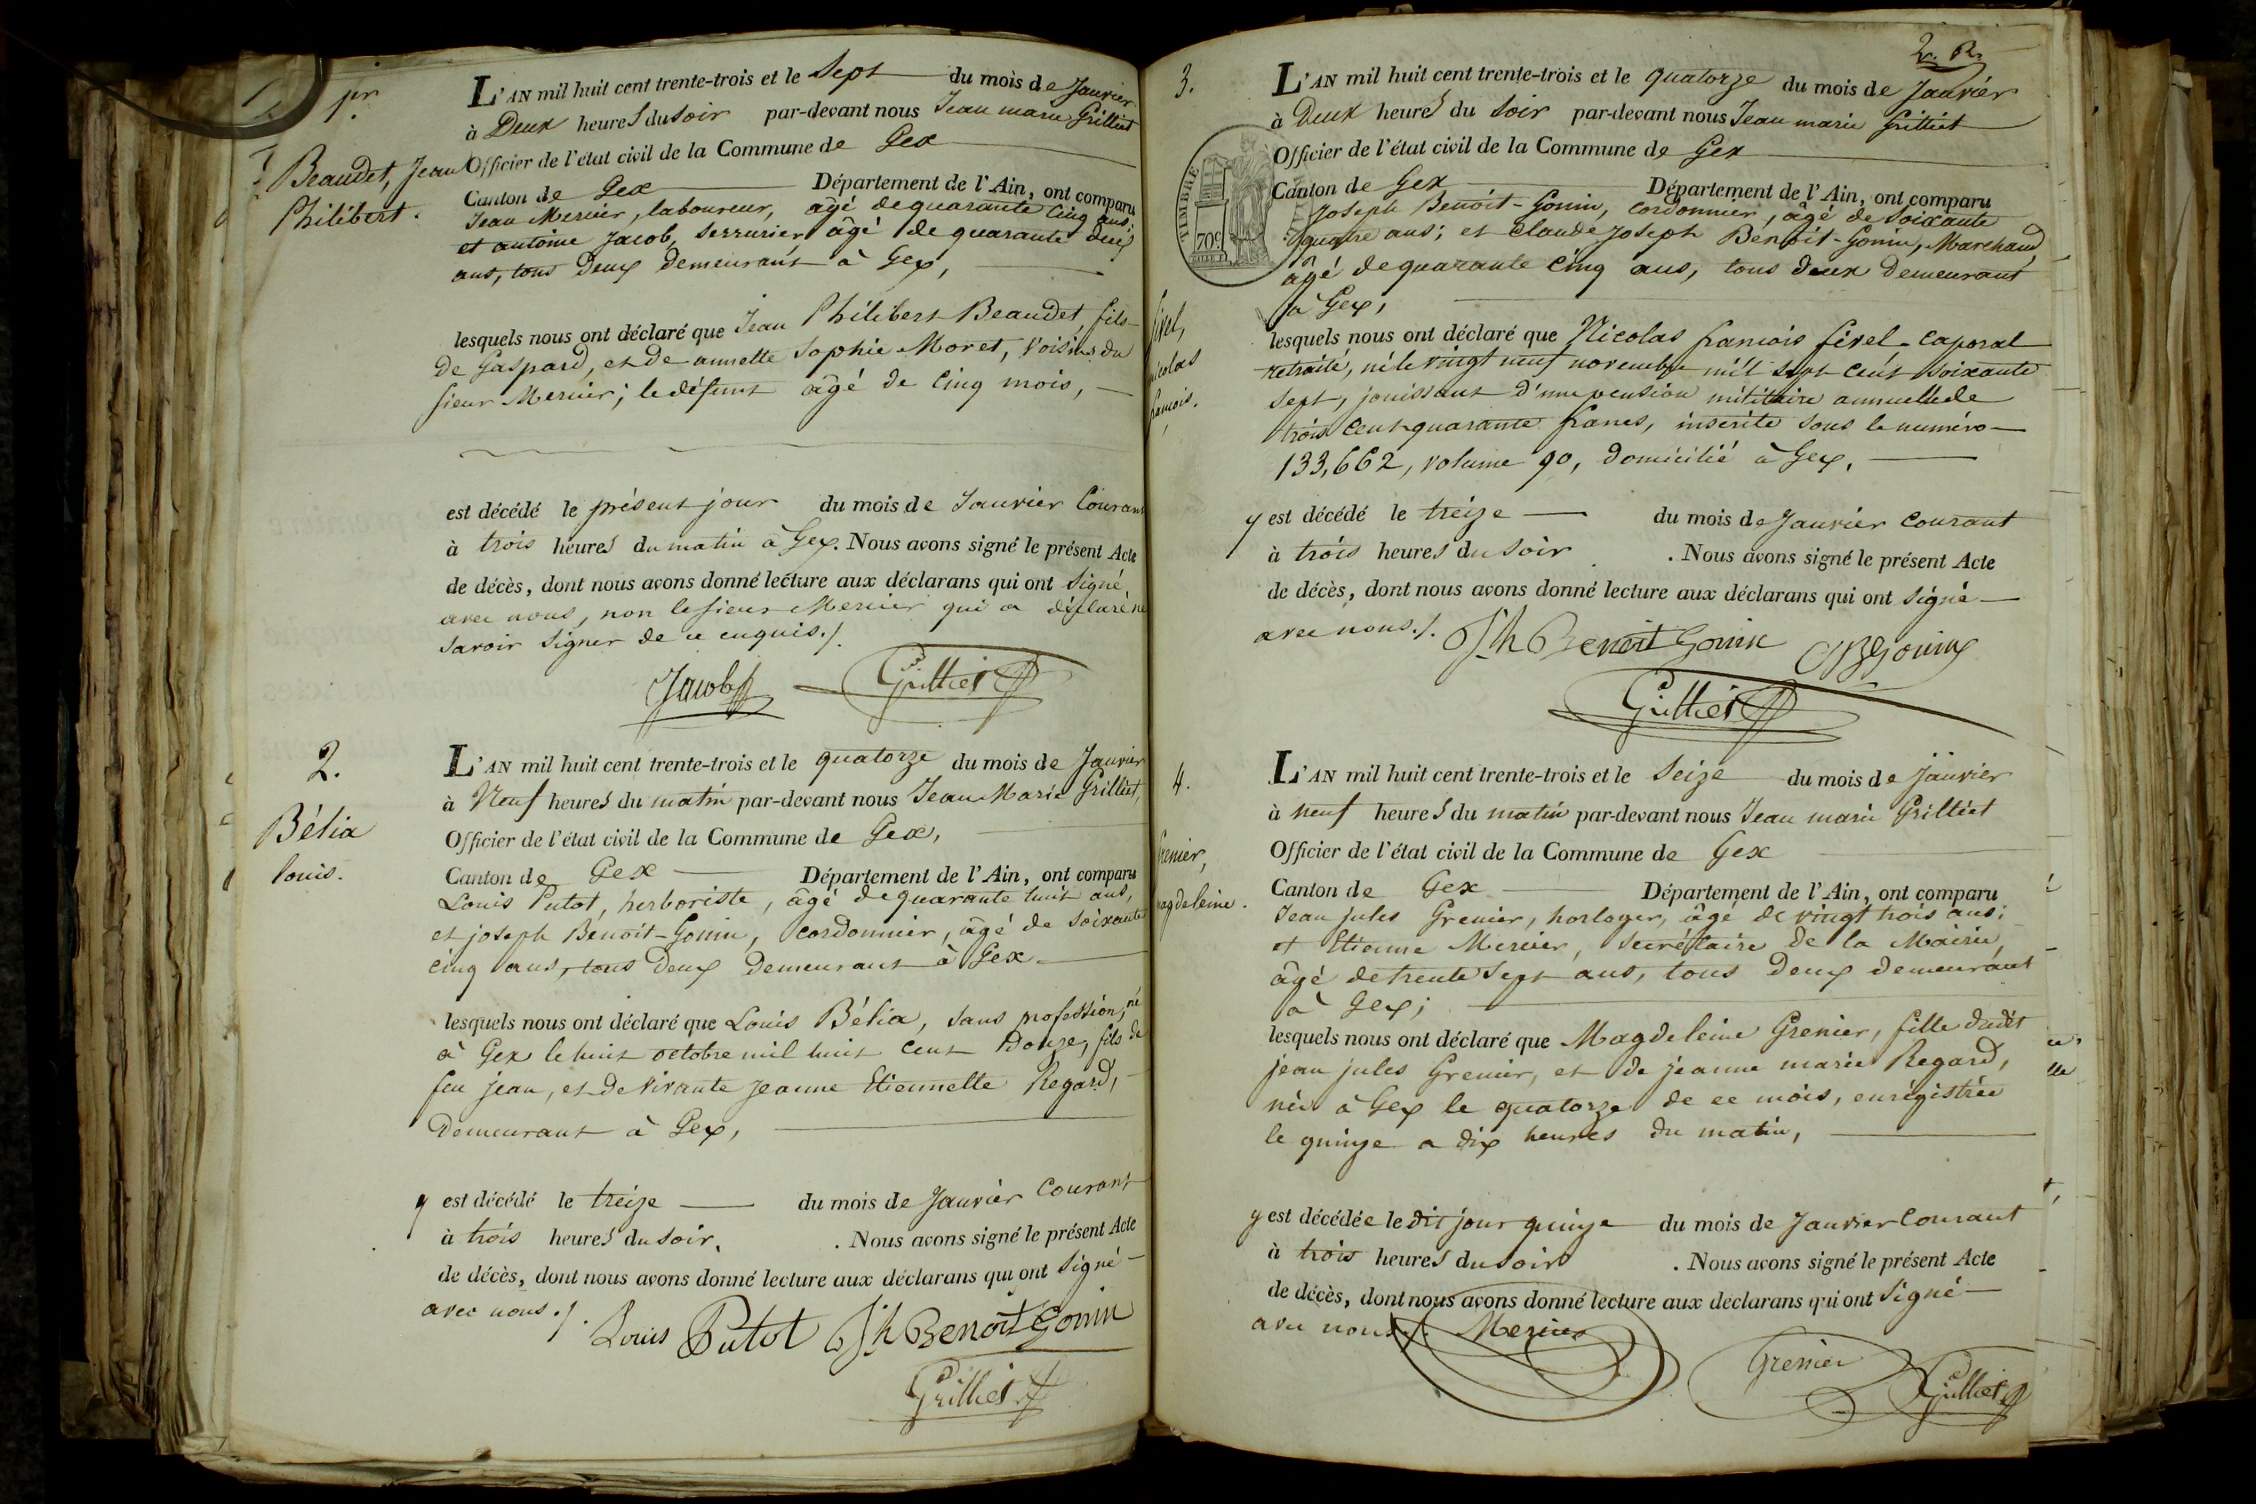 1.
pr.
Beaudet, Jean
Philibert.
L'AN mil huit cent trente-trois et le Sept du mois de Janvier
à Deux heures du Soir par-devant nous Jean marie Grilliet
Officier de l'état civil de la Commune de Gex
Canton de Gex Département de l'Ain, ont comparu
Jean Mercier, laboureur, âgé de quarante Cinq ans;
et antoine Jacob, Serrurier âgé de quarante deux
ans, tous Deux Demeurant à Gex,
lesquels nous ont déclaré que Jean Philibert Beaudet, fils
De Gaspard, et de annette Sophie Moret, Voisins du
Sieur Mercier; le défunt âgé de Cinq mois,
est décédé le présent jour du mois de Janvier Courant
à trois heures du matin à Gex. Nous avons signé le présent Acte
de décès, dont nous avons donné lecture aux déclarans qui ont Signé
avec nous, non le Sieur Mercier qui a déclaré ne
Savoir Signer de ce enquis./.
Jacob Grilliet
2.
Bélia
louis.
L'AN mil huit cent trente-trois et le quatorze du mois de Janvier
à Neuf heures du matin par-devant nous Jean Marie Grilliet,
Officier de l'état civil de la Commune de Gex,
Canton de Gex Département de l'Ain, ont comparu
Louis Putot, herboriste, âgé de quarante huit ans,
et joseph Benoit-Gonin, Cordonnier, âgé de Soixante
Cinq ans, tous Deux Demeurant à Gex
lesquels nous ont déclaré que Louis Bélia, Sans profession, né
à Gex le huit octobre mil huit Cent Douze, fils de
feu jean, et de vivante Jeanne Etiennette Regard,
Demeurant à Gex,
y est décédé le treize du mois de Janvier Courant
à trois heures du Soir, . Nous avons signé le présent Acte
de décès, dont nous avons donné lecture aux déclarans qui ont Signé
avec nous./.
Louis Putot Jh Benoit Gonin
Grilliet
3.
2. R.
TIMBRE
70c
fivel,
nicolas
francois.
L'AN mil huit cent trente-trois et le quatorze du mois de Janvier
à Deux heures du Soir par-devant nous Jean marie Grilliet
Officier de l'état civil de la Commune de Gex
Canton de Gex Département de l'Ain, ont comparu
Joseph Benoit-Gonin, Cordonnier, âgé de Soixante
quatre ans; et Claude Joseph Benoit-Gonin, Marchand,
âgé de quarante Cinq ans, tous Deux Demeurant
à Gex,
lesquels nous ont déclaré que Nicolas francois fivel Caporal
retraité, né le vingt neuf novembre mil Sept Cent Soixante
Sept, jouissant d'une pension militaire annuelle de
trois Cent quarante francs, inscrite Sous le numéro
133,662, volume 90, Domicilié à Gex,
y est décédé le treize du mois de Janvier Courant
à trois heures du Soir . Nous avons signé le présent Acte
de décès, dont nous avons donné lecture aux déclarans qui ont Signé
avec nous./. Jh Benoit Gonin CJBGonin
Grilliet
4.
Grenier,
magdeleine.
L'AN mil huit cent trente-trois et le Seize du mois de janvier
à neuf heures du matin par-devant nous Jean marie Grilliet
Officier de l'état civil de la Commune de Gex
Canton de Gex Département de l'Ain, ont comparu
Jean Jules Grenier, horloger, âgé de vingt trois ans;
et Etienne Mercier, Secrétaire de la Mairie,
âgé de trente Sept ans, tous Deux Demeurant
à Gex;
lesquels nous ont déclaré que Magdeleine Grenier, fille dudit
jean jules Grenier, et de jeanne marie Regard,
née à Gex le quatorze de ce mois, enrégistrée
le quinze a dix heures du matin,
y est décédée le dit jour quinze du mois de Janvier Courant
à trois heures du Soir . Nous avons signé le présent Acte
de décès, dont nous avons donné lecture aux déclarans qui ont Signé
avec nous./. Mercier
Grenier Grilliet